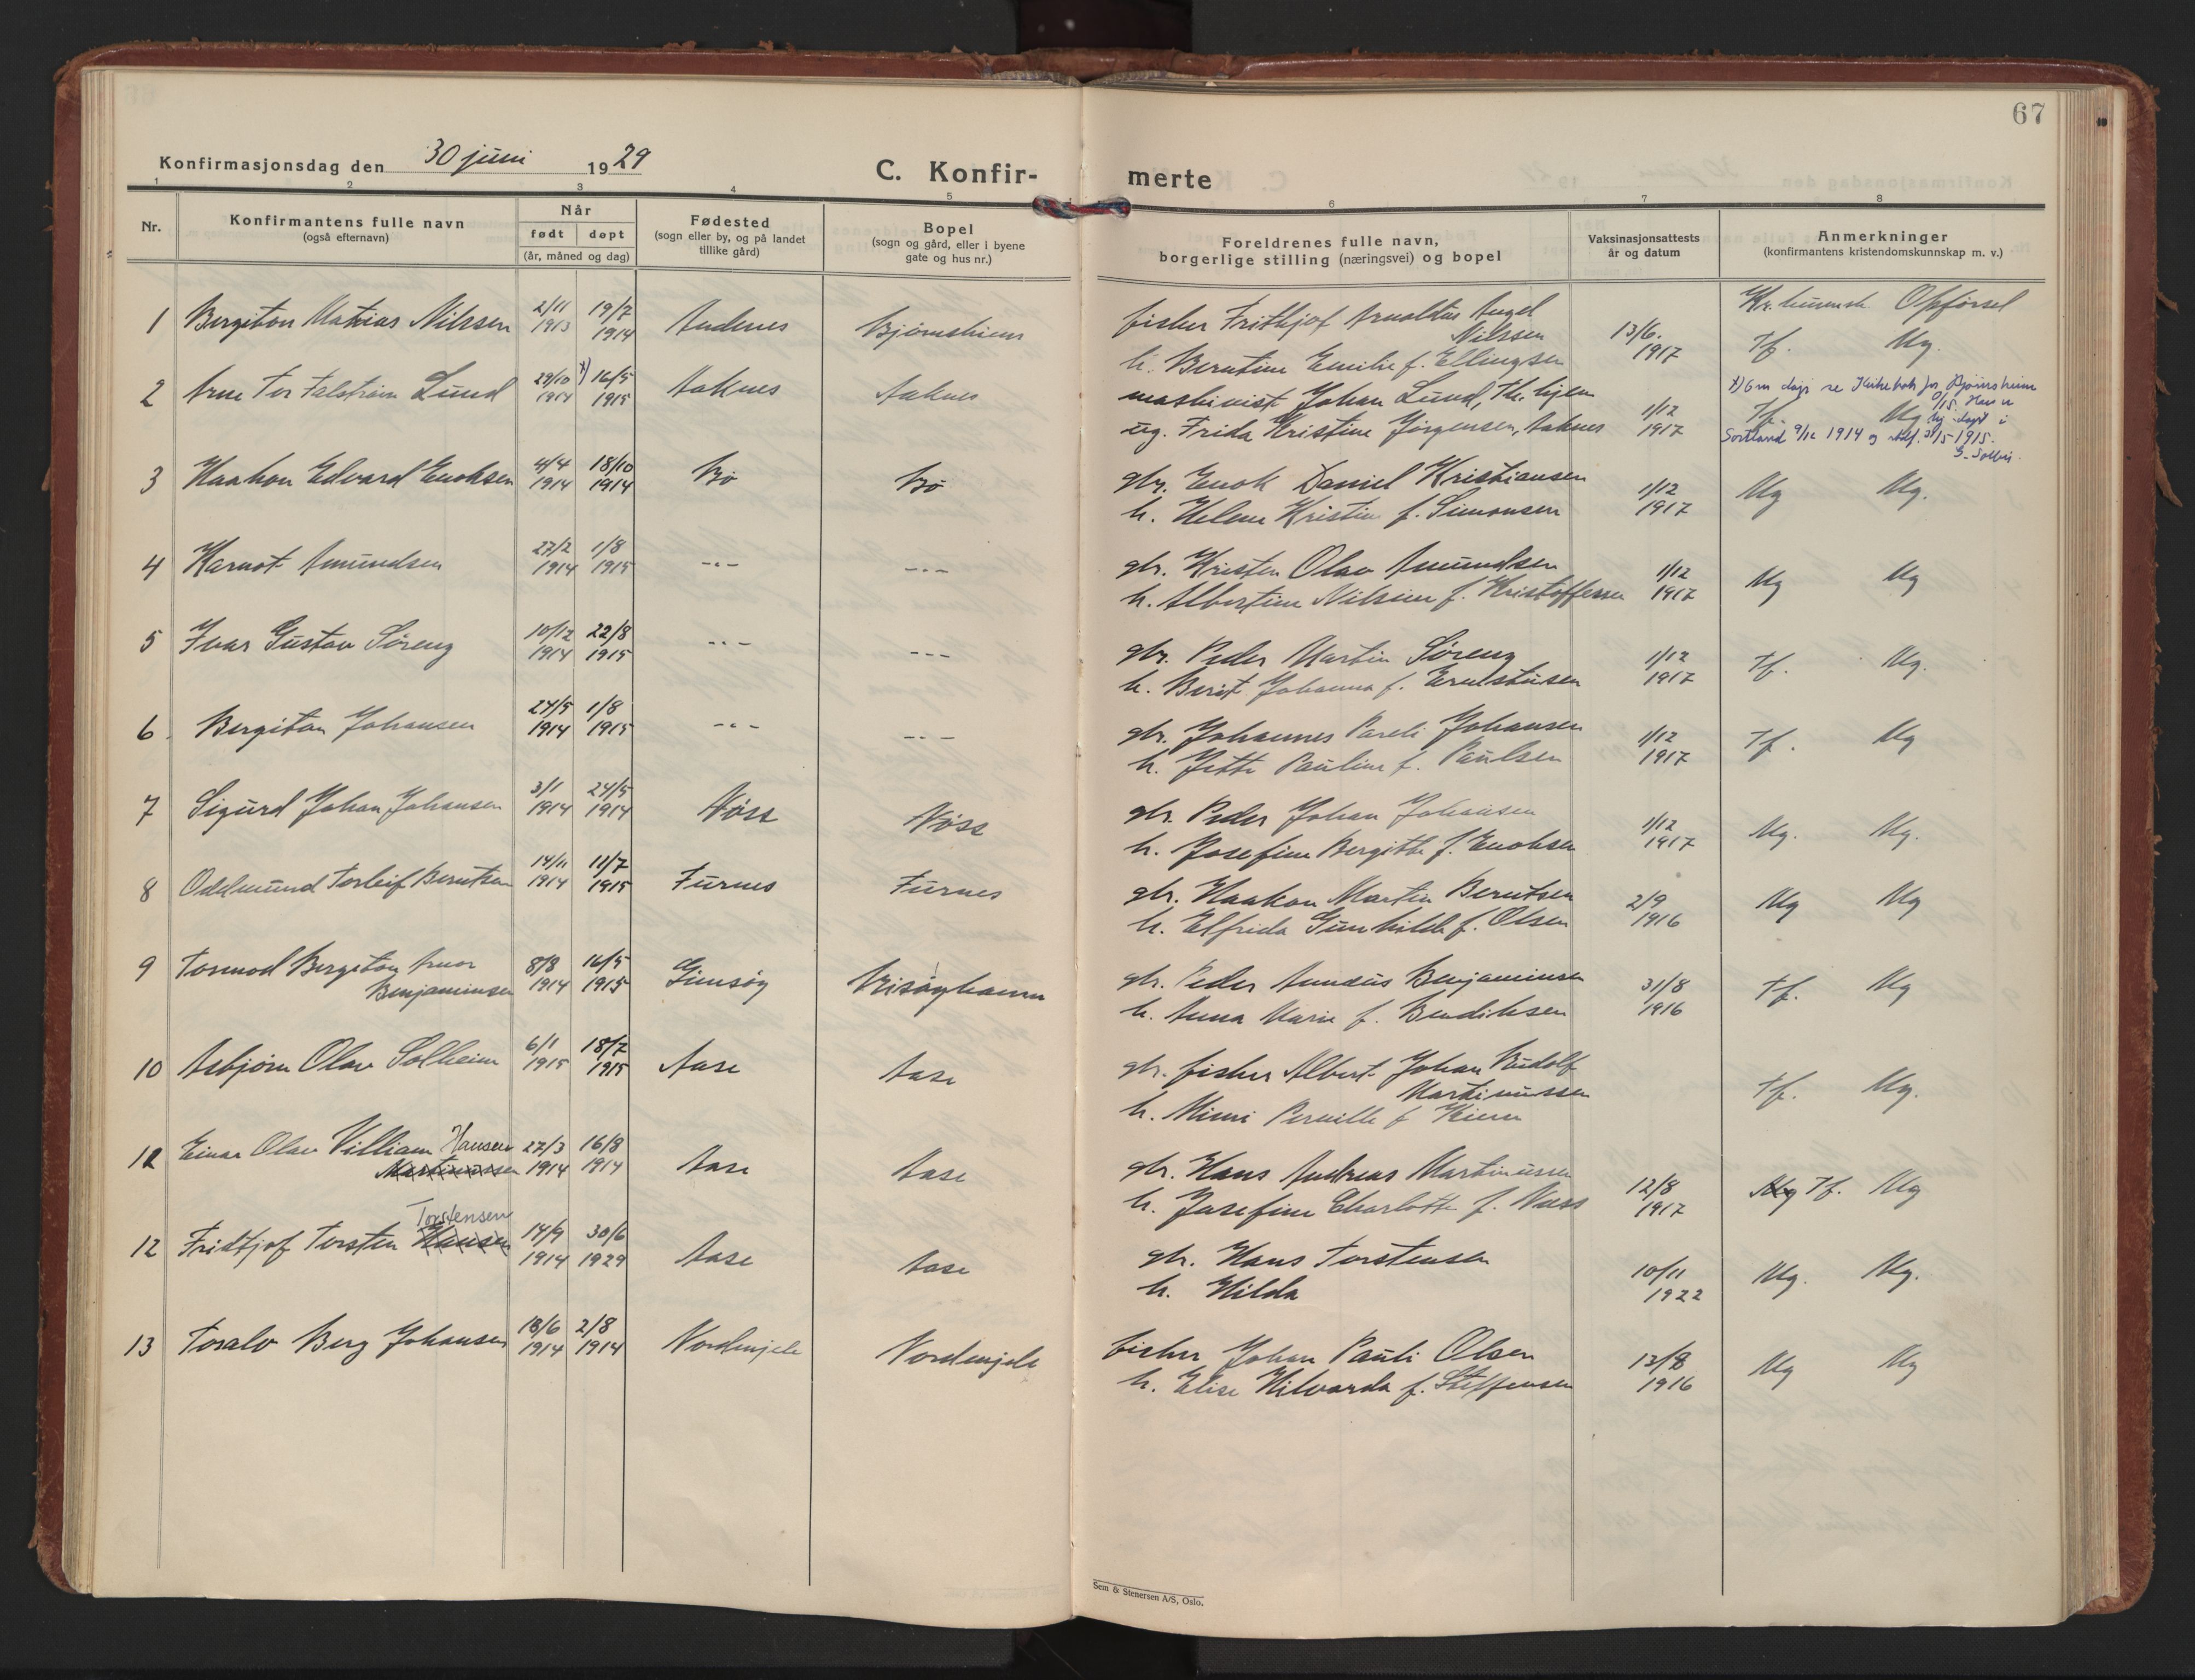 67
Konfirmasjonsdag den 30 juni 1929
C. Konfir- merte
1 2 3 4 5 6 7 8
Nr.
Konfirmantens fulle navn
(også efternavn)
Når
født døpt
(år, måned og dag)
Fødested
(sogn eller by, og på landet
tillike gård)
Bopel
(sogn og gård, eller i byene
gate og hus nr.)
Foreldrenes fulle navn,
borgerlige stilling (næringsvei) og bopel
Vaksinasjonsattests
år og datum
Anmerkninger
(konfirmantens kristendomskunnskap m. v.)
Opførsel
1 Bergiton Mathias Nilssen 2/11 1913 19/7 1914 Andenes
fisker Frithjof Arnoldus Angel
Nilssen
h. Berntine Emilie f. Ellingsen
13/6. 1917 Tf. Mg.
2 Arne Tor Lund 29/10 1914 x) 16/5 1915 Aaknes Aaknes
maskinist Johan Lund,
ug. Frida Kristine Jørgensen, Aaknes
1/12 1917 Tf. Mg
x) Om dåp se Kirkebok for Bjørnskinn
Sortland 9/12 1914 1915.
3 Haakon Edvard Enoksen 4/4 1914 18/10 1914 Bø Bø
gbr. Enok Daniel Kristiansen
h. Helene Kristine f. Simonsen
1/12 1917 Mg Mg.
4 Harnot Amundsen 27/2 1914 1/8 1915 -"- -"-
gbr. Kristen Olav Amundsen
h. Albertine Nilsine f. Kristoffersen
1/12 1917 Mg Mg
5 Ivar Gustav Søreng 10/12 1914 22/8 1915 -"- -"-
gbr. Peder Martin Søreng
h. Berit Johanna f. Ernstsen
1/12 1917 Tf. Mg.
6. Bergiton Johansen 24/5 1914 1/8 1915 -"- -"-
gbr. Johannes Pareli Johansen
h. Jette Pauline f. Paulsen
1/12 1917 Tf. Mg
7 Sigurd Johan Johansen 3/1 1914 24/5 1914 Nøss Nøss
gbr. Peder Johan Johansen
h. Josefine Bergitte f. Enoksen
1/12 1917 Mg. Mg.
8 Oddmund Torleif Berntsen 14/11 1914 11/7 1915 Furnes Furnes
gbr. Haakon Martin Berntsen
h. Elfrida Gunhilde f. Olsen
2/9 1916 Mg Mg
9 Tormod Bergeton Arnor
Benjaminsen
8/8 1914 16/5 1915 Gimsøy Risøyhamn
gbr. Peder Benjaminsen
h. Anna Marie f. Bendiksen
31/8 1916 Tf. Mg
10 Asbjørn Olav Solheim 6/1 1915 18/7 1915 Aase Aase
gbr. fisker Albert Johan Rudolf
Martinussen
h. Mimi Pernille f
Tf. Mg.
11 Einar Olav Villiam Hansen
Martinussen
27/3 1914 16/8 1914 Aase Aase
gbr. Hans Andreas Martinussen
h. Josefine Charlotte f. Næss
12/8 1917 Mg Tf. Mg
Torstensen
12 Fridtjof Torsten Hansen 14/9 1914 30/6 1929 Aase Aase
gbr. Hans Torstensen
h. Hilda
10/11 1922 Mg. Mg.
13 Toralv Berg Johansen 18/6 1914 2/8 1914 Nordmjele Nordmjele
fisker Johan Pauli Olsen
h. Elise Hilvarda f. Steffensen
13/8 1916 Mg Mg
Sem & Stenersen A/S, Oslo.